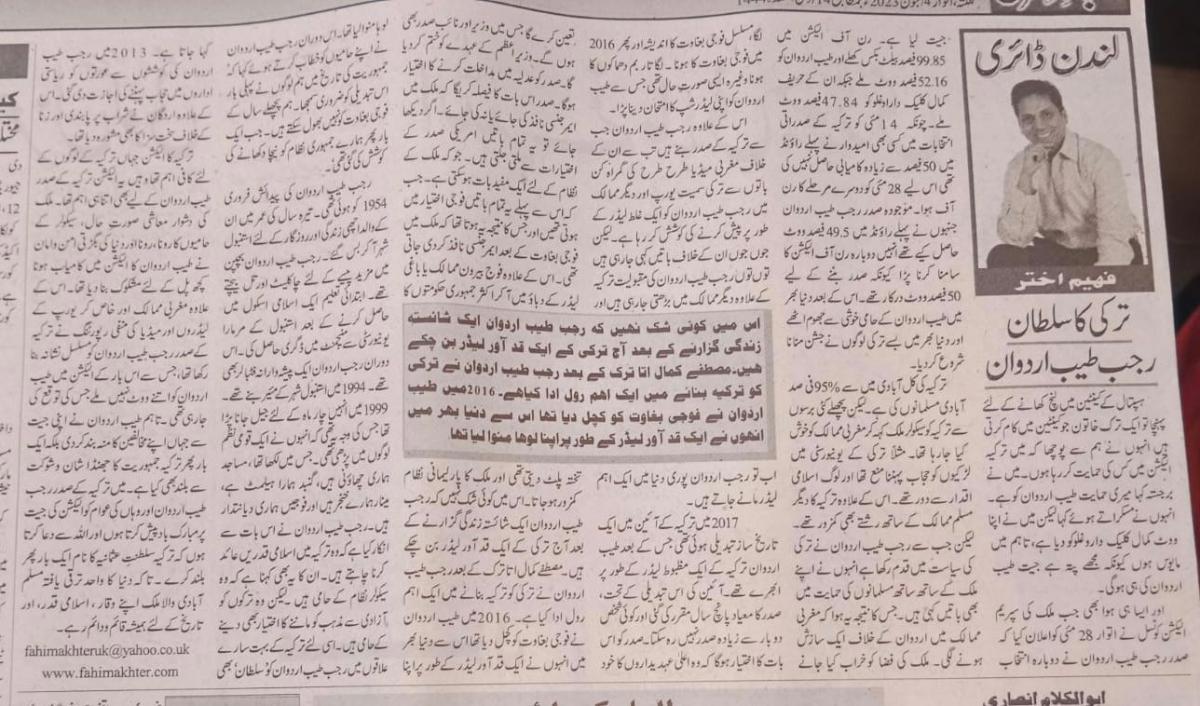 کلکتہ، اتوار 4؍جون 2023ء بمطابق 14؍
لندن ڈائری
فہیم اختر
ترکی کا سلطان
رجب طیب اردوان
ہسپتال کے کینٹین میں لنچ کھانے کے لئے
پہنچا تو ایک ترک خاتون جو کینٹین میں کام کرتی
ہیں انہوں نے ہم سے پوچھا کہ میں ترکیہ
الیکشن میں کس کی حمایت کر رہا ہوں۔ میں نے
برجستہ کہا میری حمایت طیب اردوان کو ہے۔
انہوں نے مسکراتے ہوئے کہا لیکن میں نے اپنا
ووٹ کمال کلیک داروغلو کو دیا ہے، تاہم میں
مایوس ہوں کیونکہ مجھے پتہ ہے جیت طیب
اردوان کی ہی ہوگی۔
اور ایسا ہی ہوا بھی جب ملک کی سپریم
الیکشن کونسل نے اتوار 28 مئی کو اعلان کیا کہ
صدر رجب طیب اردوان نے دوبارہ انتخاب
جیت لیا ہے۔ رن آف الیکشن میں
99.85فیصد بیلٹ بکس کھلے اور طیب اردوان کو
52.16 فیصد ووٹ ملے جبکہ ان کے حریف
کمال کلیک داراوغلو کو 47.84 فیصد ووٹ
ملے۔ چونکہ 14مئی کو ترکیہ کے صدراتی
انتخابات میں کسی بھی امیدوار نے پہلے راؤنڈ
میں 50فیصد سے زیادہ کامیابی حاصل نہیں کی
تھی اس لیے 28 مئی کو دوسرے مرحلے کا رن
آف ہوا۔ موجودہ صدر رجب طیب اردوان
جنہوں نے پہلے راؤنڈ میں 49.5 فیصد ووٹ
حاصل کیے تھے انہیں دوبارہ رن آف الیکشن کا
سامنا کرنا پڑا کیونکہ صدر بننے کے لیے
50 فیصد ووٹ درکار تھے۔ اس کے بعد دنیا بھر
میں طیب اردوان کے حامی خوشی سے جھوم اٹھے
اور دنیا بھر میں بسے ترکی لوگوں نے جشن منانا
شروع کر دیا۔
ترکیہ کی کل آبادی میں سے %95 فی صد
آبادی مسلمانوں کی ہے۔ لیکن پچھلے کئی برسوں
سے ترکیہ کو سیکولر ملک کہہ کر مغربی ممالک کو خوش
کیا جا رہا تھا۔ مثلاً ترکی کے یونیورسٹی میں
لڑکیوں کو حجاب پہننا منع تھا اور لوگ اسلامی
اقدار سے دور تھے۔ اس کے علاوہ ترکیہ کا دیگر
مسلم ممالک کے ساتھ رشتے بھی کمزور تھے۔
لیکن جب سے رجب طیب اردوان نے ترکی
کی سیاست میں قدم رکھا ہے انہوں نے اپنے
ملک کے ساتھ ساتھ مسلمانوں کی حمایت میں
بھی باتیں کہی ہیں۔ جس کا نتیجہ یہ ہوا کہ مغربی
ممالک میں اردوان کے خلاف ایک سازش
ہونے لگی۔ ملک کی فضا کو خراب کیا جانے
لگا، مسلسل فوجی بغاوت کا اندیشہ اور پھر 2016
میں فوجی بغاوت کا ہونا۔ لگاتار بم دھماکوں کا
ہونا وغیرہ ایسی صورتِ حال تھی جس سے طیب
اردوان کو اپنی لیڈرشپ کا امتحان دینا پڑا۔
اس کے علاوہ رجب طیب اردوان جب
سے ترکیہ کے صدر بنے ہیں تب سے ان کے
خلاف مغربی میڈیا طرح طرح کی گمراہ کن
باتوں سے ترکی سمیت یورپ اور دیگر ممالک
میں رجب طیب اردوان کو ایک غلط لیڈر کے
طور پر پیش کرنے کی کوشش کر رہا ہے۔ لیکن
جوں جوں ان کے خلاف باتیں کہی جا رہی ہیں
توں توں رجب طیب اردوان کی مقبولیت ترکیہ
کے علاوہ دیگر ممالک میں بڑھتی جا رہی ہیں اور
اب تو رجب اردوان پوری دنیا میں ایک اہم
لیڈر مانے جاتے ہیں۔
2017 میں ترکیہ کے آئین میں ایک
تاریخ ساز تبدیلی ہوئی تھی جس کے بعد طیب
اردوان ترکیہ کے ایک مظبوط لیڈر کے طور پر
ابھرے تھے۔ آئین کی اس تبدیلی کے تحت،
صدر کا معیاد پانچ سال مقرر کی گئی اور کوئی شخص
دو بار سے زیادہ صدر نہیں رہ سکتا۔ صدر کو اس
بات کا اختیار ہوگا کہ وہ اعلیٰ عہدیداروں کا خود
تعین کرے گا جس میں وزیر اور نائب صدر بھی
ہوں گے۔ وزیر اعظم کے عہدے کو ختم کر دیا
گا۔ صدر کو عدلیہ میں مداخلت کرنے کا اختیار
ہوگا۔ صدر اس بات کا فیصلہ کریگا کہ ملک میں
ایمرجنسی نافذ کی جائے یا نہ کی جائے۔ اگر دیکھا
جائے تو یہ تمام باتیں امریکی صدر کے
اختیارات سے ملتی جلتی ہیں۔ جو کہ ملک کے
نظام کے لئے ایک مفید بات ہو سکتی ہے۔ جب
کہ اس سے پہلے یہ تمام باتیں فوجی اختیار میں
ہوتی تھیں اور جس کا نتیجہ یہ ہوتا تھا کہ ملک میں
فوجی بغاوت کے بعد ایمرجنسی نافذ کر دی جاتی
تھی۔ اس کے علاوہ فوج بیرون ممالک یا باغی
لیڈر کے دباؤ میں آ کر اکثر جمہوری حکومتوں کا
اس میں کوئی شک نہیں کہ رجب طیب اردوان ایک شائستہ
زندگی گزارنے کے بعد آج ترکی کے ایک قد آور لیڈر بن چکے
ہیں۔مصطفےٰ کمال اتا ترک کے بعد رجب طیب اردوان نے ترکی
کو ترکیہ بنانے میں ایک اہم رول ادا کیاہے۔ 2016میں طیب
اردوان نے فوجی بغاوت کو کچل دیا تھا اس سے دنیا بھر میں
انھوں نے ایک قد آور لیڈر کے طور پر اپنا لوہا منوا لیا تھا
تختہ پلٹ دیتی تھی اور ملک کا پارلیمانی نظام
کمزور ہو جاتا۔ اس میں کوئی شک نہیں کہ رجب
طیب اردوان ایک شائستہ زندگی گزارنے کے
بعد آج ترکی کے ایک قد آور لیڈر بن چکے
ہیں۔ مصطفےٰ کمال اتا ترک کے بعد رجب طیب
اردوان نے ترکی کو ترکیہ بنانے میں ایک اہم
رول ادا کیا ہے۔ 2016 میں طیب اردوان
نے فوجی بغاوت کو کچل دیا تھا اس سے دنیا بھر
میں انہوں نے ایک قد آور لیڈر کے طور پر اپنا
لوہا منوا لیا تھا۔ اس دوران رجب طیب اردوان
نے اپنے حامیوں کو خطاب کرتے ہوئے کہا کہ'
جمہوریت کی تاریخ میں ہم لوگوں نے پہلی بار
اس تبدیلی کو ضروری سمجھا۔ ہم پچھلے سال کے
فوجی بغاوت کو نہیں بھول سکتے ہیں۔ جب ایک
بار پھر ہمارے جمہوری نظام کو نیچا دکھانے کی
کوشش کی گئی تھی'۔
رجب طیب اردوان کی پیدائش فروری
1954 کو ہوئی تھی۔ تیرہ سال کی عمر میں ان
کے والد اچھی زندگی اور روزگار کے لئے استنبول
شہر آ کر بس گئے۔ رجب طیب اردوان بچپن
میں مزید پیسے کے لئے چاکلیٹ اور تل بیچتے
تھے۔ ابتدائی تعلیم ایک اسلامی اسکول میں
حاصل کرنے کے بعد استنبول کے مرمارا
یونیورسٹی سے مینجمنٹ میں ڈگری حاصل کی۔ اس
دوران رجب اردوان ایک پیشہ ورانہ فٹبالر بھی
تھے۔ 1994 میں استنبول شہر کے میئر بنے تھے۔
1999 میں انہیں چار ماہ کے لئے جیل جانا پڑا
تھا جس کی وجہ یہ تھی کہ انہوں نے ایک قومی نظم
لوگوں میں پڑھی تھی۔ جس میں لکھا تھا، مساجد
ہماری چھاؤنی ہیں، گنبد ہمارا ہیلمٹ ہے،
مینار ہمارے خنجر ہیں اور فوجیں ہماری دیانتدار
ہیں۔ رجب طیب اردوان نے اس بات سے
انکار کیا ہے کہ وہ ترکیہ میں اسلامی قدریں عائد
کرنا چاہتے ہیں۔ ان کا یہ بھی کہنا ہے کہ وہ
سیکولر نظام کے حامی ہیں۔ لیکن وہ ترکوں کو
آزادی سے مذہب کو ماننے کا اختیار بھی دینے
کے حامی ہیں۔ اسی لئے ترکیہ کے بہت سارے
علاقوں میں رجب طیب اردوان کو سلطان بھی
کہا جاتا ہے۔ 2013 میں رجب طیب
اردوان کی کوششوں سے عورتوں کو ریاستی
اداروں میں حجاب پہننے کی اجازت دی گئی۔ اس
کے علاوہ اردگان نے شراب پر پابندی اور زنا
کے خلاف سخت سزا کا بھی مشورہ دیا تھا۔
ترکیہ کا الیکشن جہاں ترکیہ کے لوگوں کے
لئے کافی اہم تھا وہیں یہ الیکشن ترکیہ کے صدر
طیب اردوان کے لیے بھی اتنا ہی اہم تھا۔ ملک
کی دشوار معاشی صورتِ حال، سیکولر کے
حامیوں کا رونا، رونا اور دنیا کی بگڑتی امن و امان
نے طیب اردوان کا الیکشن میں کامیاب ہونا
کچھ پل کے لئے مشکوک بنا دیا تھا۔ اس کے
علاوہ مغربی ممالک اور خاص کر یورپ کے
لیڈروں اور میڈیا کی منفی رپورٹنگ نے ترکیہ
کے صدر رجب طیب اردوان کو مسلسل نشانہ بنا
رکھا تھا، جس سے اس بار کے الیکشن میں طیب
اردوان کو اتنے ووٹ نہیں ملے جس کی توقع کی
جا رہی تھی۔ تاہم طیب اردوان نے اپنی جیت
سے جہاں اپنے مخالفین کا منہ بند کر دی بلکہ ایک
بار پھر ترکیہ جمہوریت کا جھنڈا شان و شوکت
سے بلند بھی کیا ہے۔ میں ترکیہ کے صدر رجب
طیب اردوان اور وہاں کی عوام کو الیکشن کی جیت
پر مبارک باد پیش کرتا ہوں اور اللہ سے دعا کرتا
ہوں کہ ترکیہ سلطنتِ عثمانیہ کا نام ایک بار پھر
بلند کرے۔ تا کہ دنیا کا واحد ترقی یافتہ مسلم
آبادی والا ملک اپنے وقار، اسلامی قدر، اور
تاریخ کے لئے ہمیشہ قائم و دائم رہے۔
fahimakhteruk@yahoo.co.uk
www.fahimakhter.com
ابوالکلام انصاری